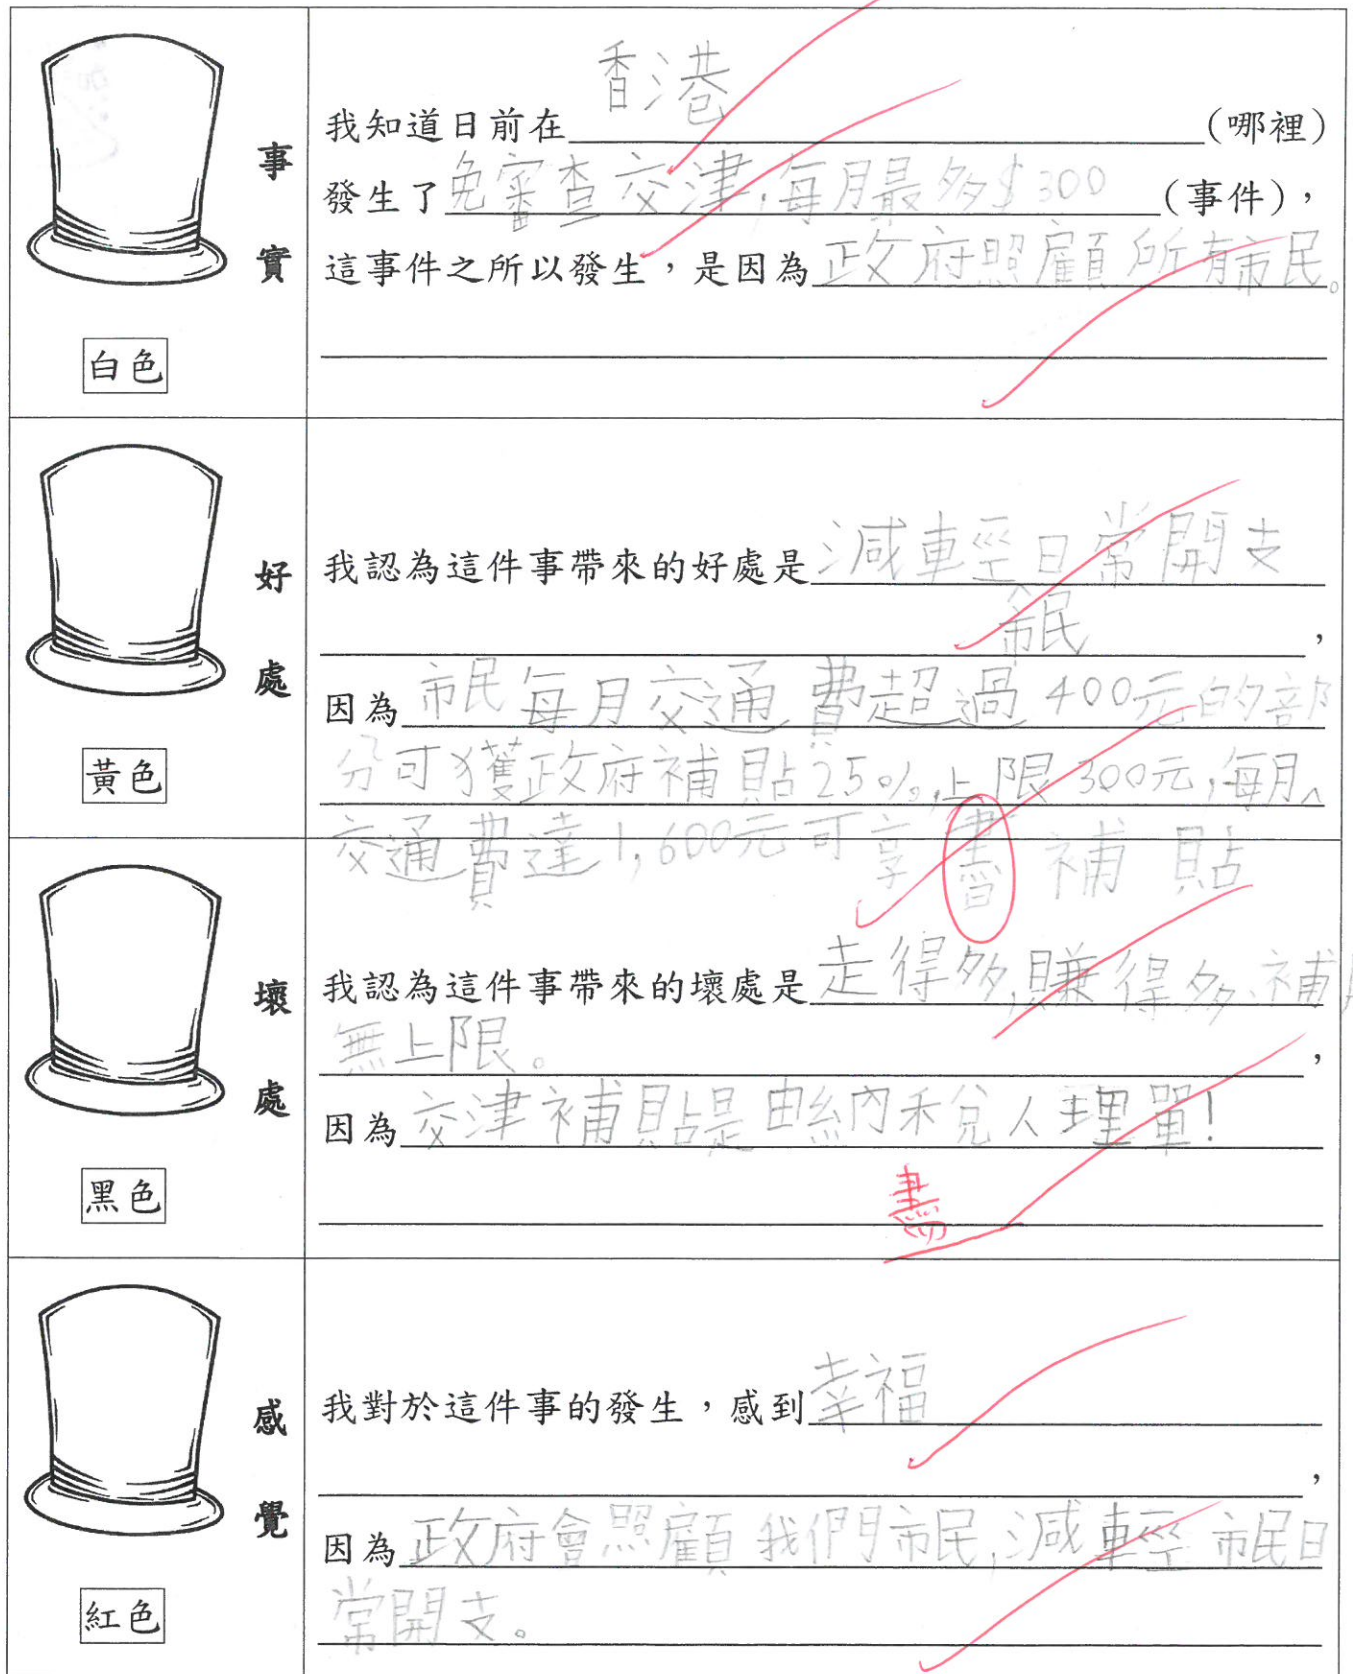 事實
白色
我知道日前在香港(哪裡)
發生了免審查交津,每月最多$300(事件),
這事件之所以發生,是因為政府照顧所有市民。
好處
黃色
我認為這件事帶來的好處是減輕日常開支
市民,
因為市民每月交通費超過400元的部
分可獲政府補貼25%,上限300元,每月
交通費達1,600元可享書補貼
壞處
黑色
我認為這件事帶來的壞處是走得多,賺得多,補
無上限。,
因為交津補貼是由納稅人埋單!
感覺
紅色
我對於這件事的發生,感到幸福
,
因為政府會照顧我們市民,減輕市民日
常開支。